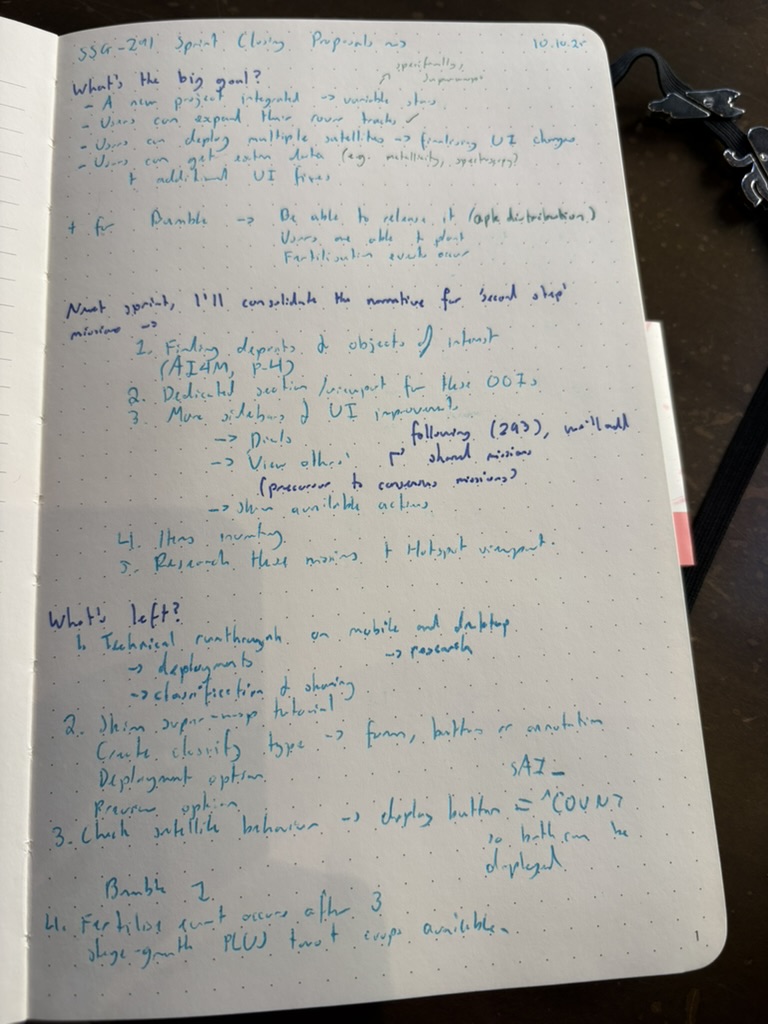 SSG-291 Sprint Closing Proposals ~> 10.10.25
specifically,
What's the big goal?
- A new project integrated -> variable stars
- Users can expand their rover tracks ✓
- Users can deploy multiple satellites -> finalising UI changes
- Users can get extra data (e.g. metallicity, spectroscopy)
+ additional UI fixes
+ for Bumble -> Be able to release it (apk distribution)
Users are able to plant
Fertilisation events occur
Next sprint, I'll consolidate the narrative for 'second step'
missions ->
1. Finding deposits & objects of interest
(AI4M, P-4)
2. Dedicated section/viewport for these OOIs
3. More sidebars & UI improvements
-> Dials
following (293), we'll add
-> View others' shared missions
(precursor to consensus missions)
-> Show available actions
4. Items inventory
5. Research these missions + Hotspot viewport.
What's left?
1. Technical runthrough on mobile and desktop
-> deployments -> research
-> classification & sharing
2. Skim tutorial
Create classify type -> form, button or annotation
Deployment option
Preview option
3. Check satellite behaviour -> deploy button = ^COUNT
so both can be
deployed
Bumble 1.
4. Fertilise event occurs after 3
stage-growth PLUS crops available
1